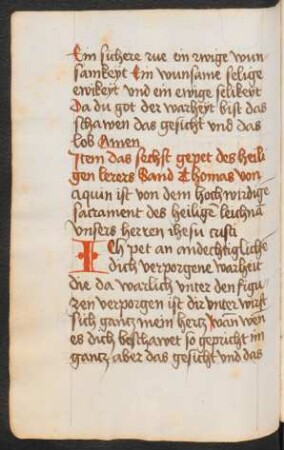 Ein sichere rue ein ewige wun
samkeyt Ein wunsame selige
ewikeyt vnd ein ewige selikeyt
Da du got der warheyt bist das
schawen das gesicht vnd das
lob Amen
Item das sechst gepet des heili
gen lerers Sand Thomas von
aquin ist von dem hochwirdige
sacrament des heilige leichna
vnsers herren ihesu cristi
Ich pet an andechtigliche
dich verporgene warheit
die da warlich vnter den figu
ren verporgen ist dir vnter wirft
sich gantz mein hertz wann wen
es dich beschawet so gepricht im
gantz aber das gesicht vnd das